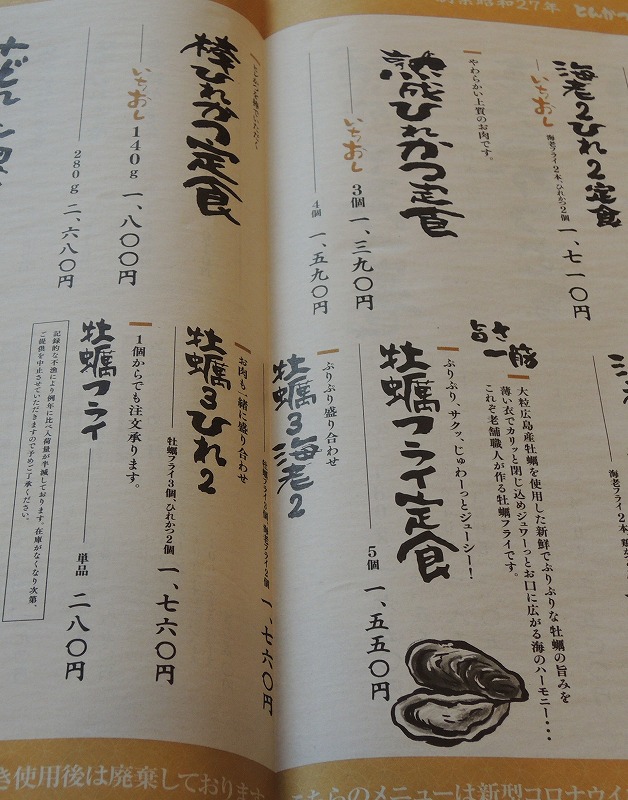 昭和27年 とんかつ
海老2ひれ2定食
いちおし
海老フライ2本、ひれかつ2個
一、七一〇円
やわらかい上質のお肉です。
熟成ひれかつ定食
いちおし
3個 一、三九〇円
4個 一、五九〇円
棒ひれかつ定食
いちおし
140g 一、八〇〇円
280g 二、六八〇円
海老フライ2本
旨さ一番
大粒広島産牡蠣を使用した新鮮でぷりぷりな牡蠣の旨みを
薄い衣でカリッと閉じ込めジュワーっとお口に広がる海のハーモニー・・・
これぞ老舗職人が作る牡蠣フライです。
ぷりぷり、サクッ、じゅわーっとジューシー！
牡蠣フライ定食
5個 一、五五〇円
ぷりぷり盛り合わせ
牡蠣3海老2
牡蠣フライ3個、海老フライ2個
一、七六〇円
お肉も一緒に盛り合わせ
牡蠣3ひれ2
牡蠣フライ3個、ひれかつ2個
一、七六〇円
1個からでも注文承ります。
牡蠣フライ
単品 二八〇円
記録的な不漁により例年に比べ入荷量が半減しております。在庫がなくなり次第、
ご提供を中止させていただきますので予めご了承ください。
き使用後は廃棄しております
こちらのメニューは新型コロナウイ